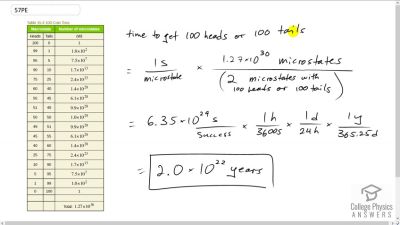 57PE
Table 15.4 100-Coin Toss
Macrostate Number of microstates
Heads Tails (W)
100 0 1
99 1 1.0×10²
95 5 7.5×10⁷
90 10 1.7×10¹³
75 25 2.4×10²³
60 40 1.4×10²⁸
55 45 6.1×10²⁸
51 49 9.9×10²⁸
50 50 1.0×10²⁹
49 51 9.9×10²⁸
45 55 6.1×10²⁸
40 60 1.4×10²⁸
25 75 2.4×10²³
10 90 1.7×10¹³
5 95 7.5×10⁷
1 99 1.0×10²
0 100 1
Total: 1.27×10³⁰
time to get 100 heads or 100 tails
= 1s / microstate × 1.27×10³⁰ microstates / (2 microstates with 100 heads or 100 tails)
= 6.35×10²⁹ s / success × 1h / 3600s × 1d / 24h × 1y / 365.25d
= 2.0×10²² years
College Physics
ANSWERS